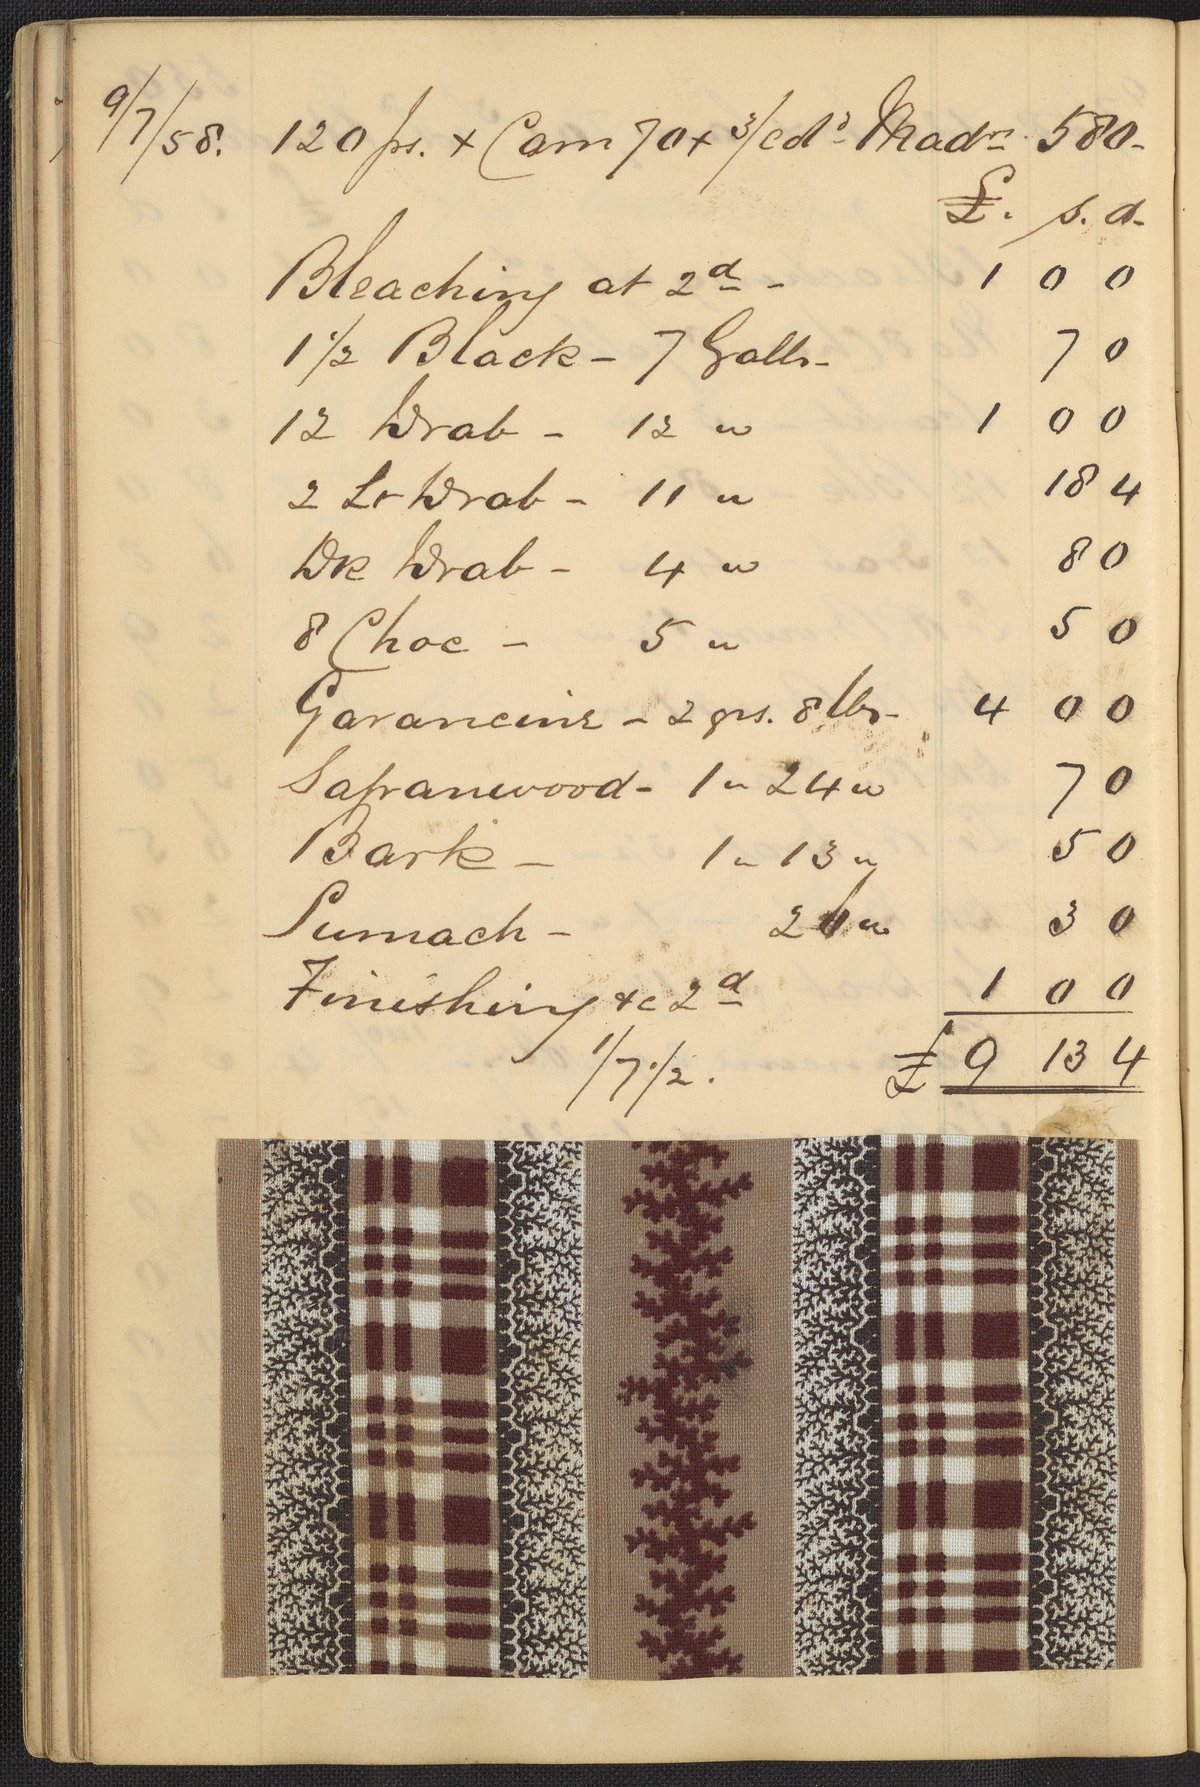 9/7/58. 120 ps. x Cam 70 x 3/cd's Madrs 580-
£. s. d.
Bleaching at 2d - 1 0 0
1 1/2 Black - 7 Galls - 7 0
12 Drab - 12 " 1 0 0
2 Lt Drab - 11 " 18 4
Dk Drab - 4 " 8 0
8 Choc - 5 " 5 0
Garancine - 2 qrs. 8 lbs - 4 0 0
Sapanwood - 1 " 24 " 7 0
Bark - 1 " 13 " 5 0
Sumach - " 3 0
Finishing &c 2d 1 0 0
1/7 1/2. £ 9 13 4